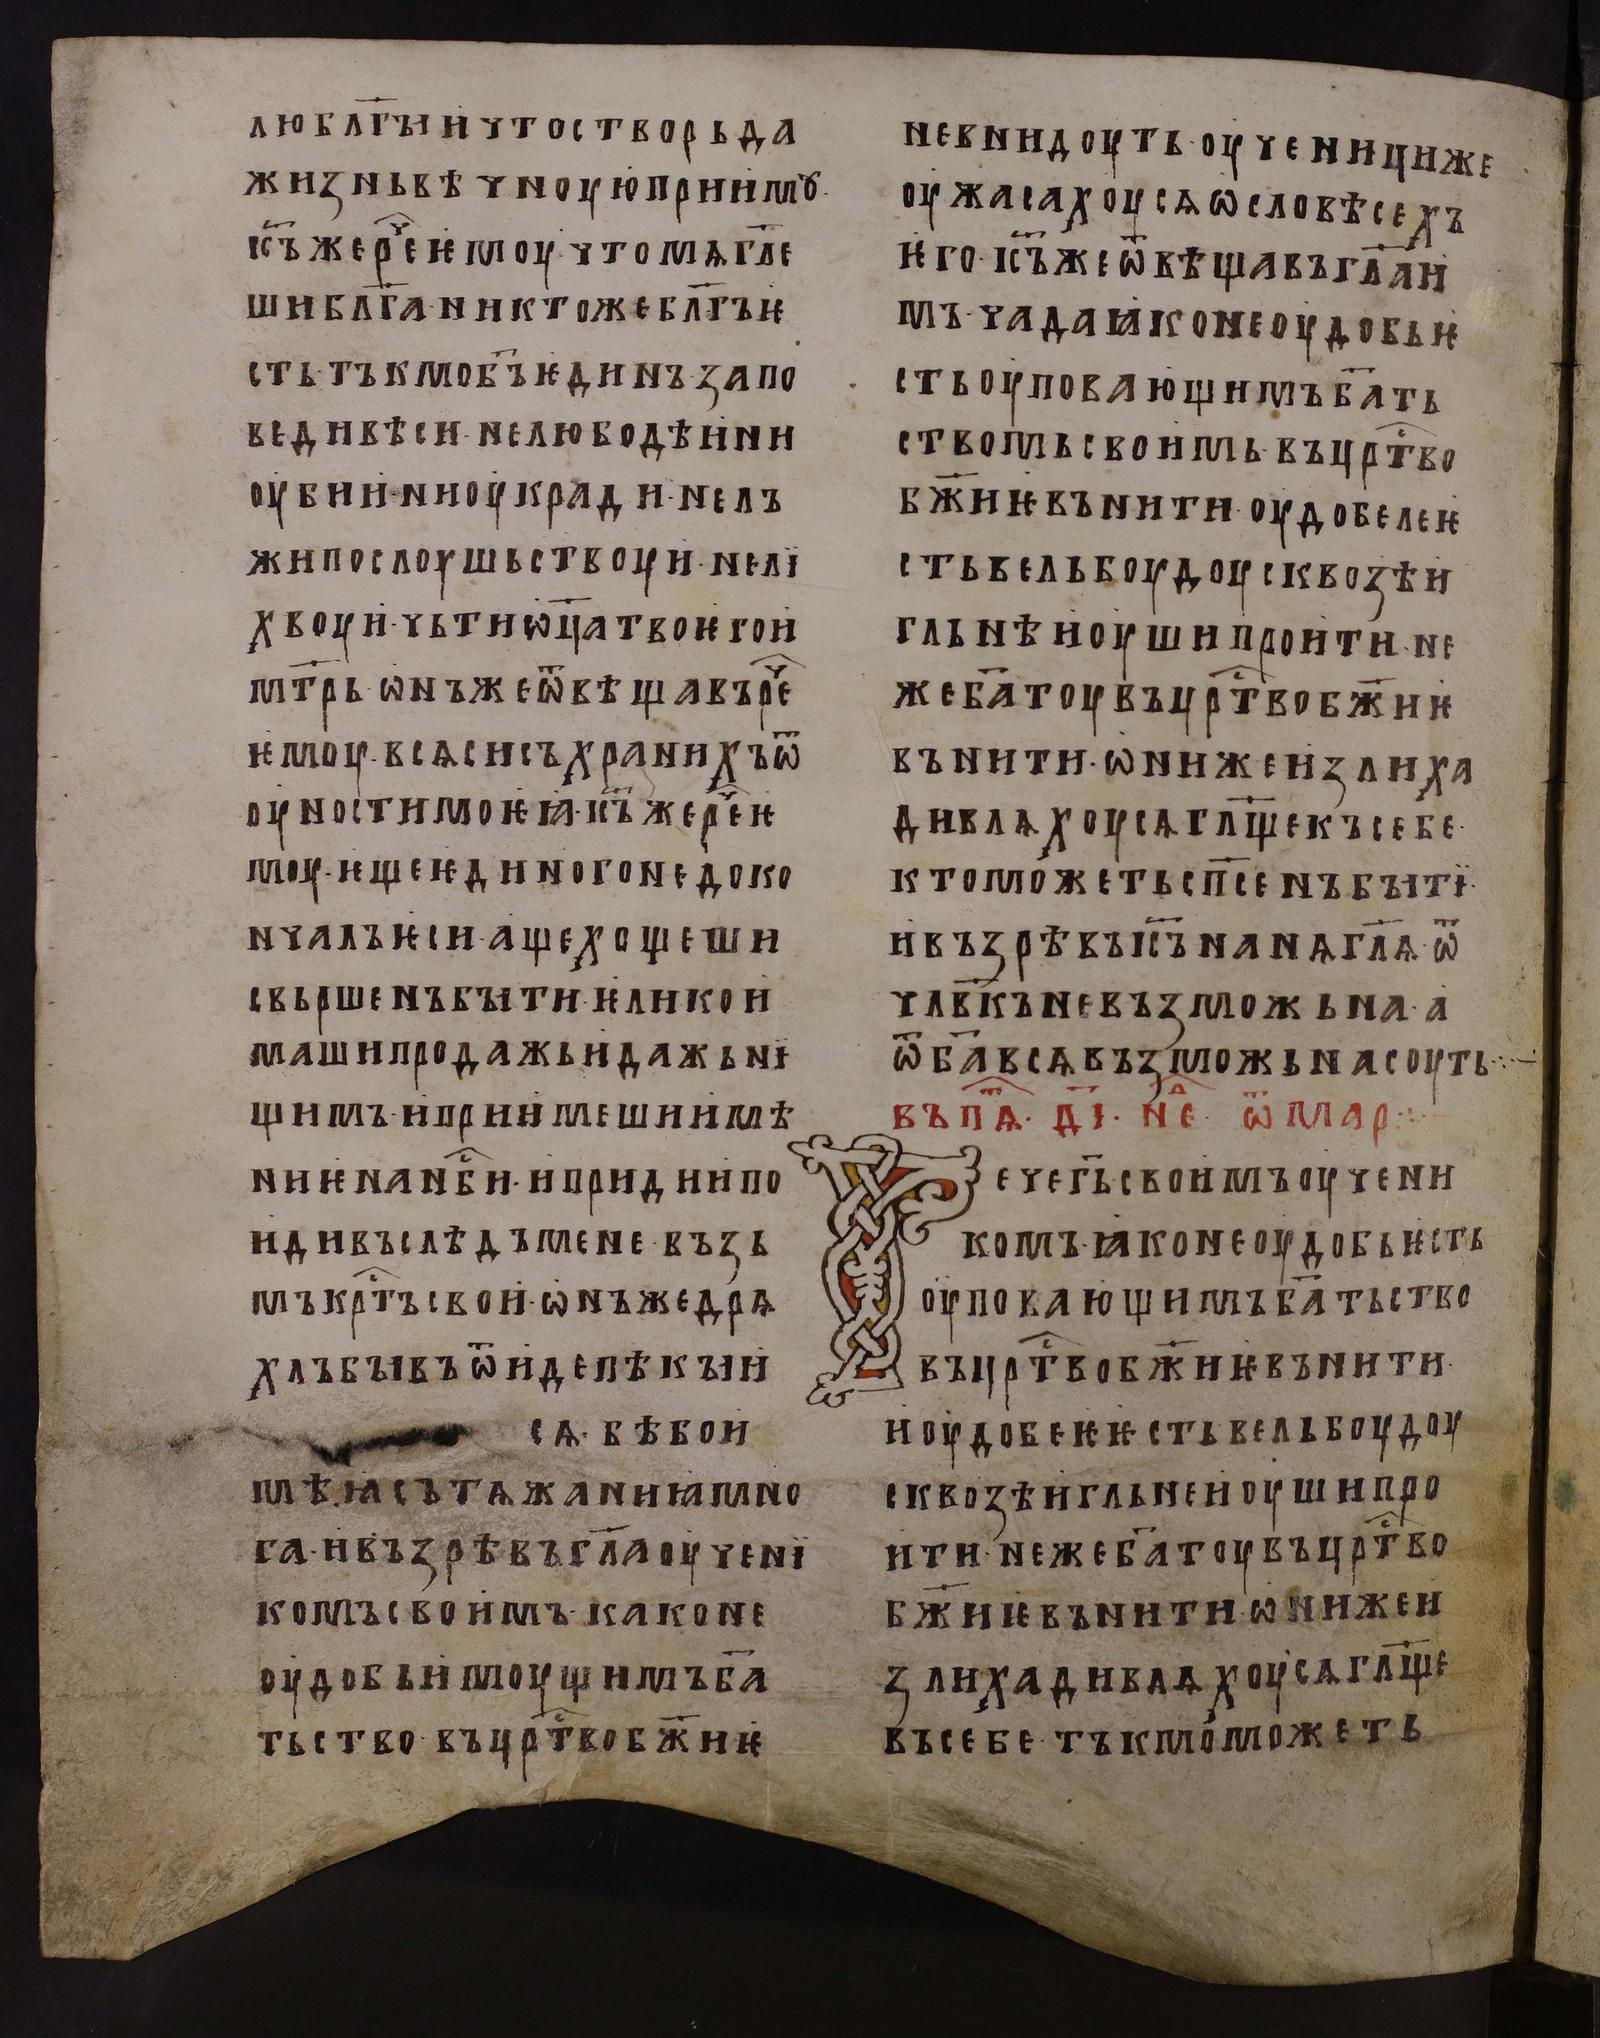 люблг҃ꙑи что створь да
жизнь вѣчноую приимꙋ·
ıс҃ъ же реч҇ ѥмоу· что мѧ гл҃е
ши бл҃га· никтоже бл҃гъ ѥ
сть· тъкмо б҃ъ ѥдинъ· запо
веди вѣси· не любодѣи ни
оубии· ни оукради· не лъ
жи послоушьствоуи· не лї
хвоуи· чьти ѡц҃а твоѥго и
мт҃рь· ѡнъ же ѿвѣщавъ реч҇
ѥмоу· всѧ си съхранихъ ѿ
оуности моѥꙗ· ıс҃ъ же реч҇ ѥ
моу· ѥще ѥдиного не доко
нчалъ ѥси· аще хощеши
свьршенъ бꙑти· ѥлико и
маши продажь и дажь нї
щимъ· иприимеши имѣ
ниѥ на нб҇и· и приди и по
иди въслѣдъ мене· възь
мъ крт҇ъ свои· ѡнъ же дрѧ
хлъ бꙑвъ ѿиде пѣкꙑи
сѧ· бѣ бо и
мѣꙗ сътѧжаниꙗ мно
га· и възрѣвъ гл҃а оученї
комъ своимъ· како не
оудобь имоущимъ б҃а
тьство· въ црт҇во бж҃иѥ
не внидоуть· оученици же
оужасахоусѧ ѡ словѣсехъ
ѥго· ıс҃ъ же ѿвѣщавъ гл҃а и
мъ· чада ꙗко не оудобь ѥ
сть оуповающимъ б҃ать
ствомь своимь· въ црт҇во
бж҃иѥ вънити· оудобелеѥ
сть вельбоудоу сквозѣ и
гльнѣи оуши проити· не
же б҃атоу въ црт҇во бж҃иѥ
вънити· ѡни же излиха
дивлѧхоусѧ гл҃ще къ себе·
кто можеть сп҃сенъ бꙑтї·
и възрѣвъ ıс҃ъ на нѧ гл҃ѧ· ѿ
члв҃къ невъзможьна· а
ѿ б҃а всѧ възможьна соуть·:·—
въ пѧ҃· д҃ı· неⷣ· ѿ мар·:·
ече г҃ь своимъ оучени
комъ· ꙗко не оудобь ѥсть
оуповающимъ б҃атьство
въ црт҇во бж҃иѥ вънити·
и оудобеѥ ѥсть вельбоудоу
сквозѣ игльне и оуши про
ити· неже б҃атоу въ црт҇во
бж҃иѥ вънити· ѡни же и
злиха дивлѧхоусѧ гл҃ще
въ себе· тъкмо можеть